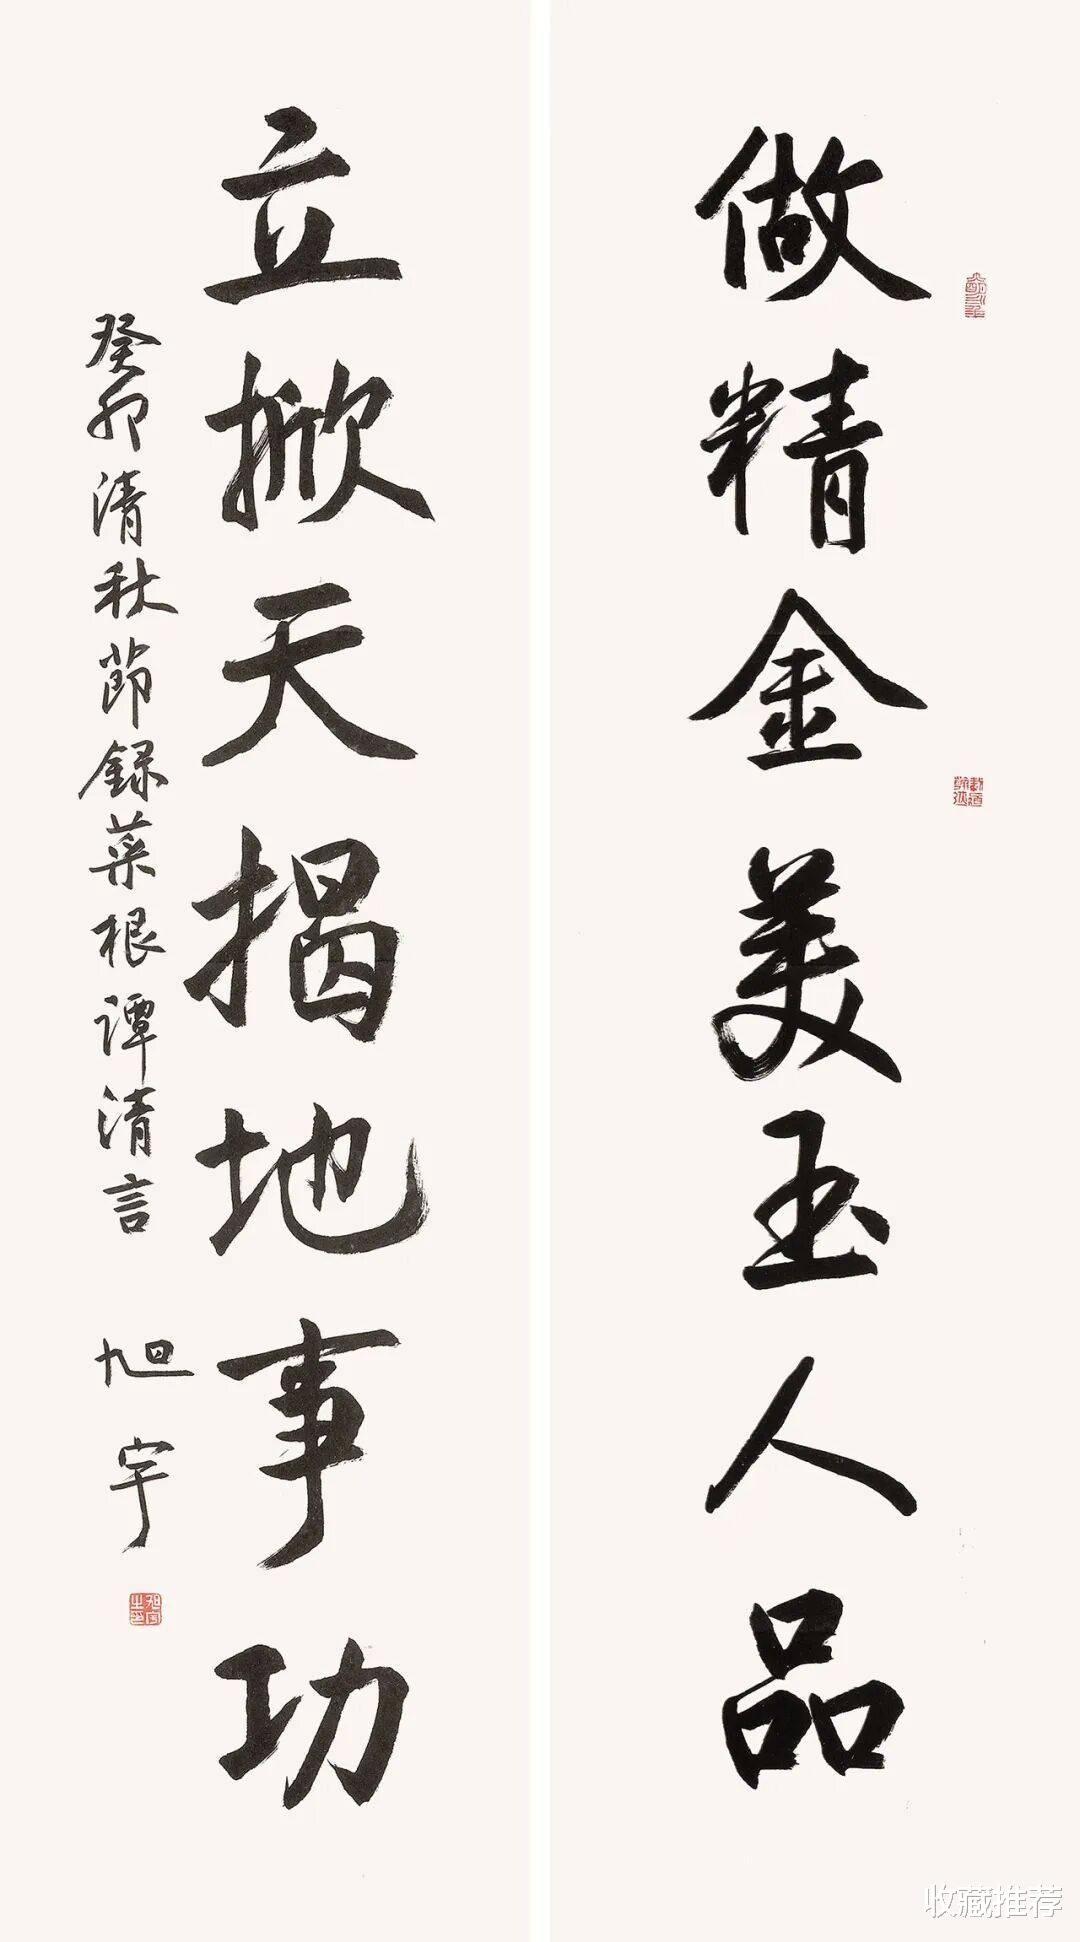 做精金美玉人品
立掀天揭地事功
癸卯清秋節録菜根谭清言
旭宇
旭宇之印
收藏推荐